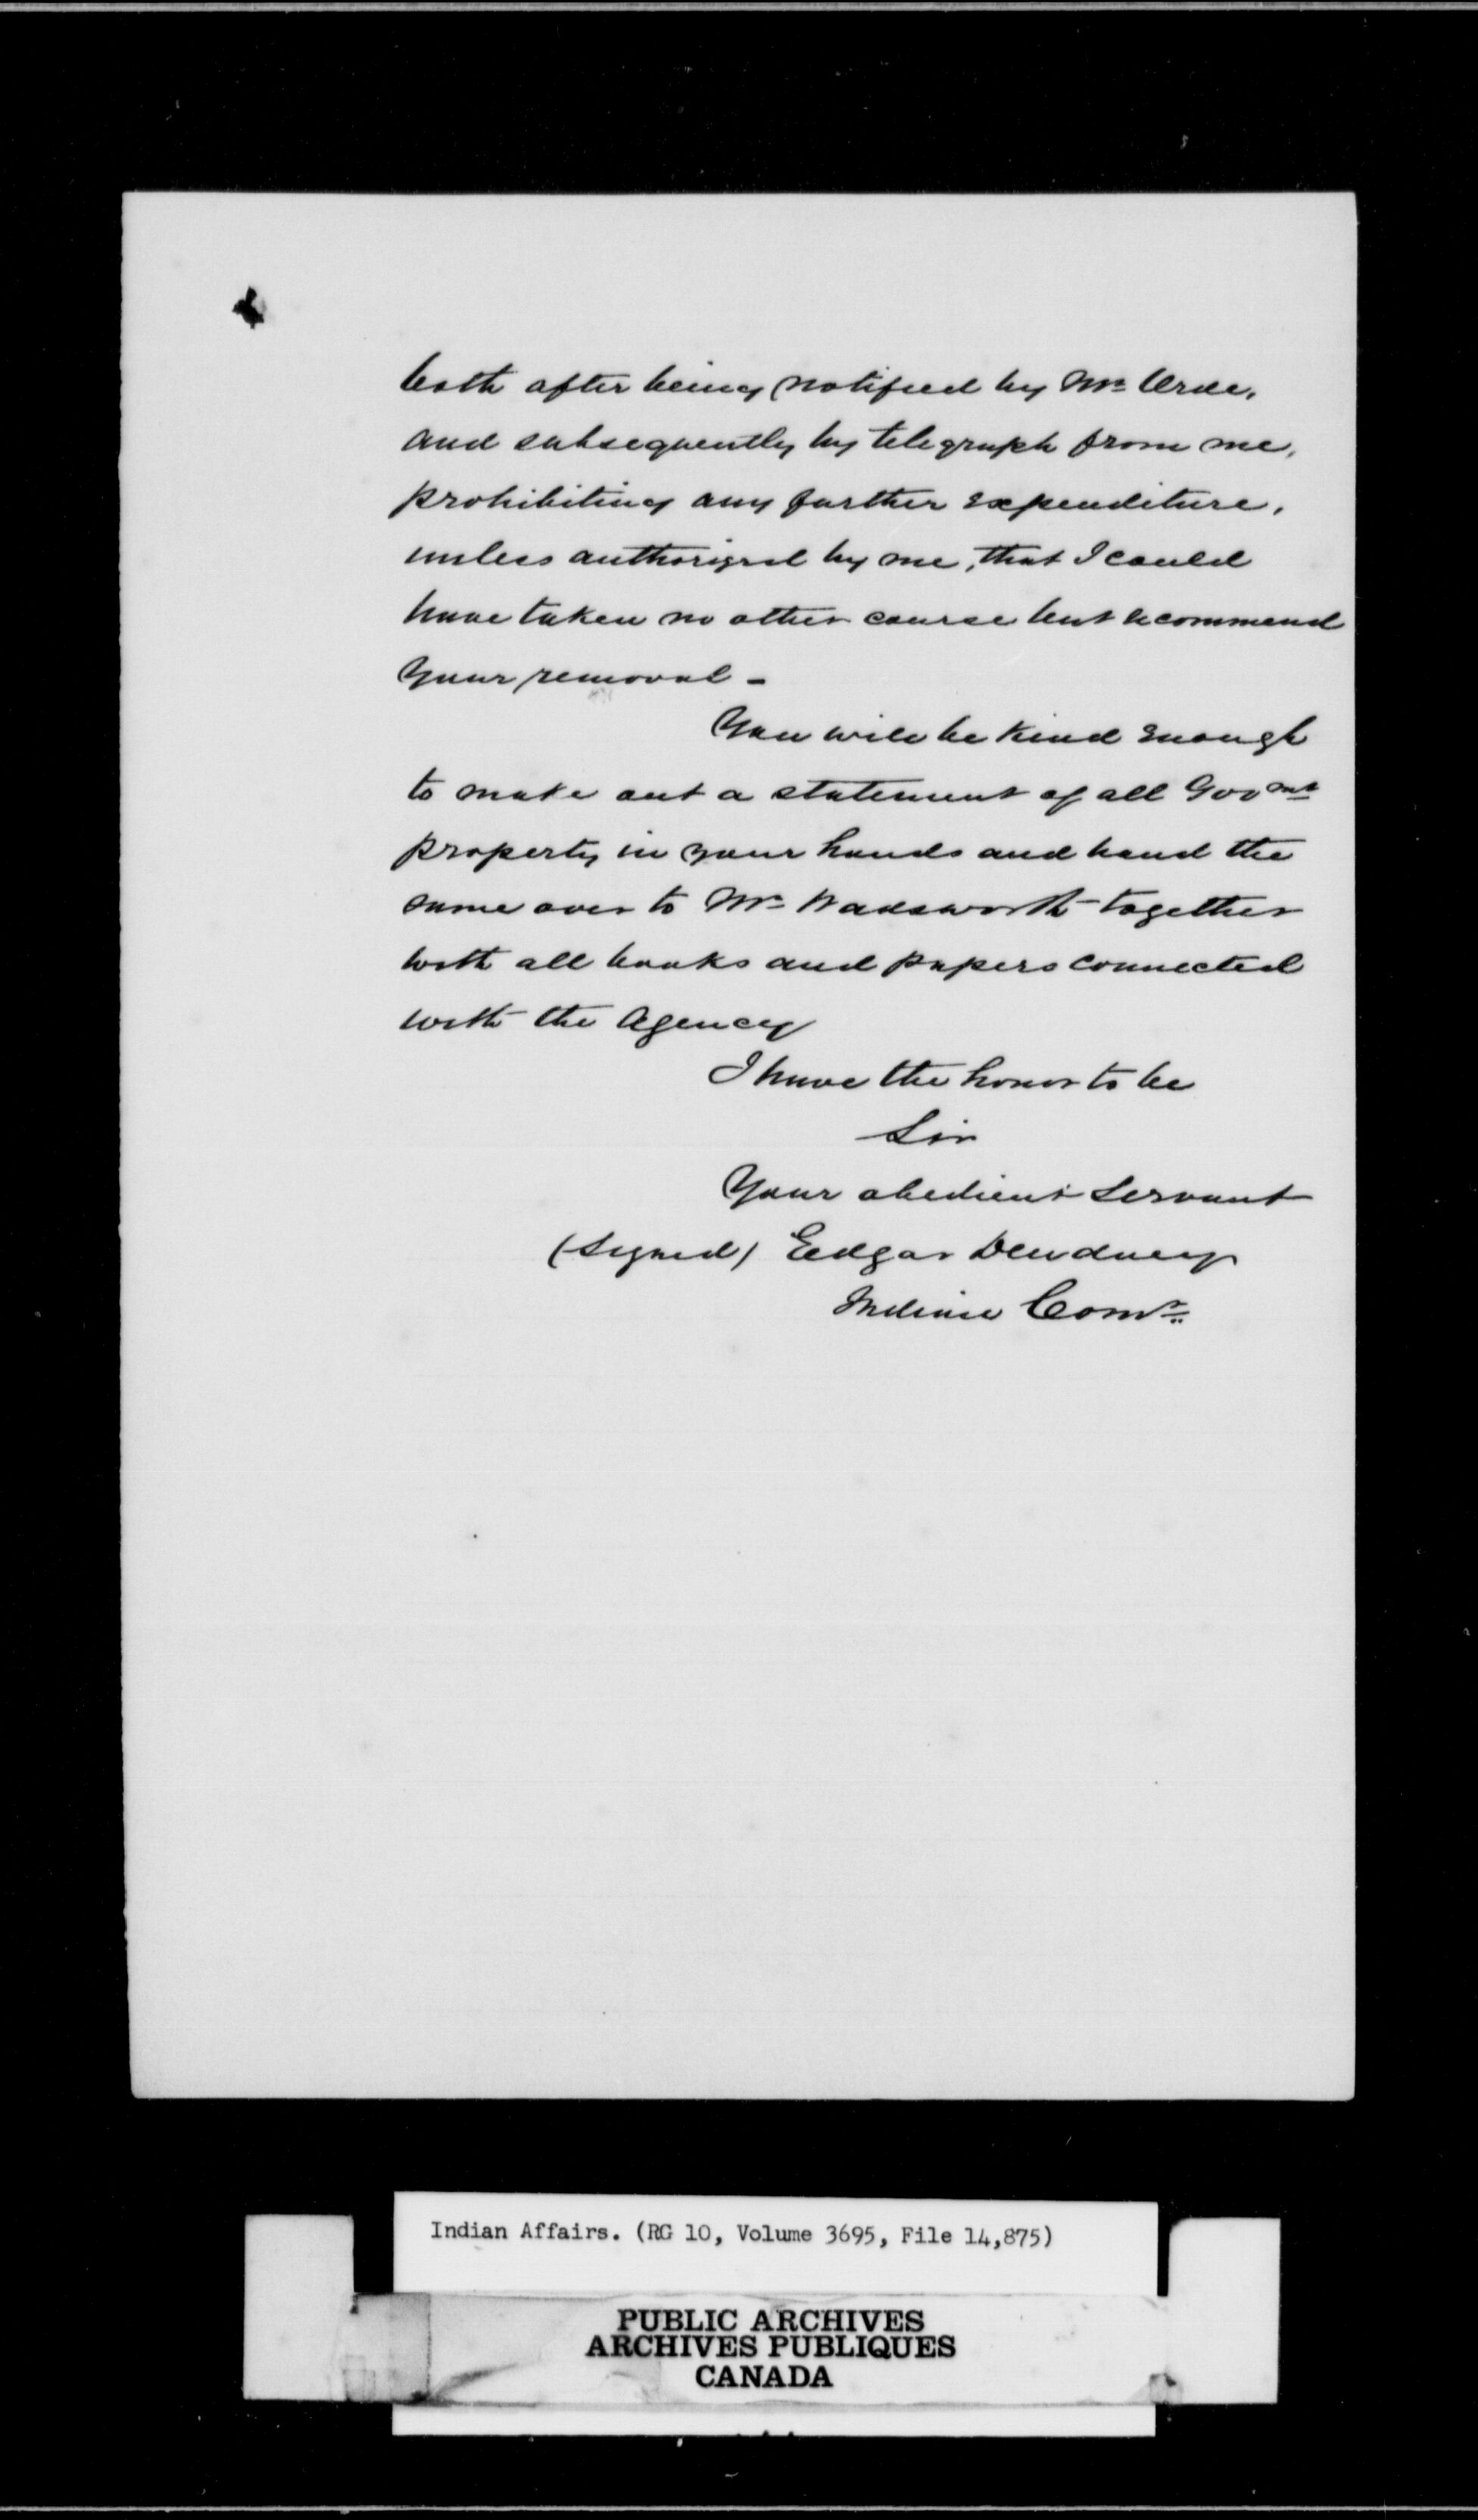 both after being notified by Mr Orde,
and subsequently by telegraph from me,
prohibiting any further expenditure,
unless authorized by me, that I could
have taken no other course but recommend
your removal -
You will be kind enough
to make out a statement of all Govmt
property in your hands and hand the
same over to Mr Wadsworth together
with all books and papers connected
with the Agency
I have the honor to be
Sir
Your obedient Servant
(Signed) Edgar Dewdney
Indian Comr
Indian Affairs. (RG 10, Volume 3695, File 14,875)
PUBLIC ARCHIVES
ARCHIVES PUBLIQUES
CANADA